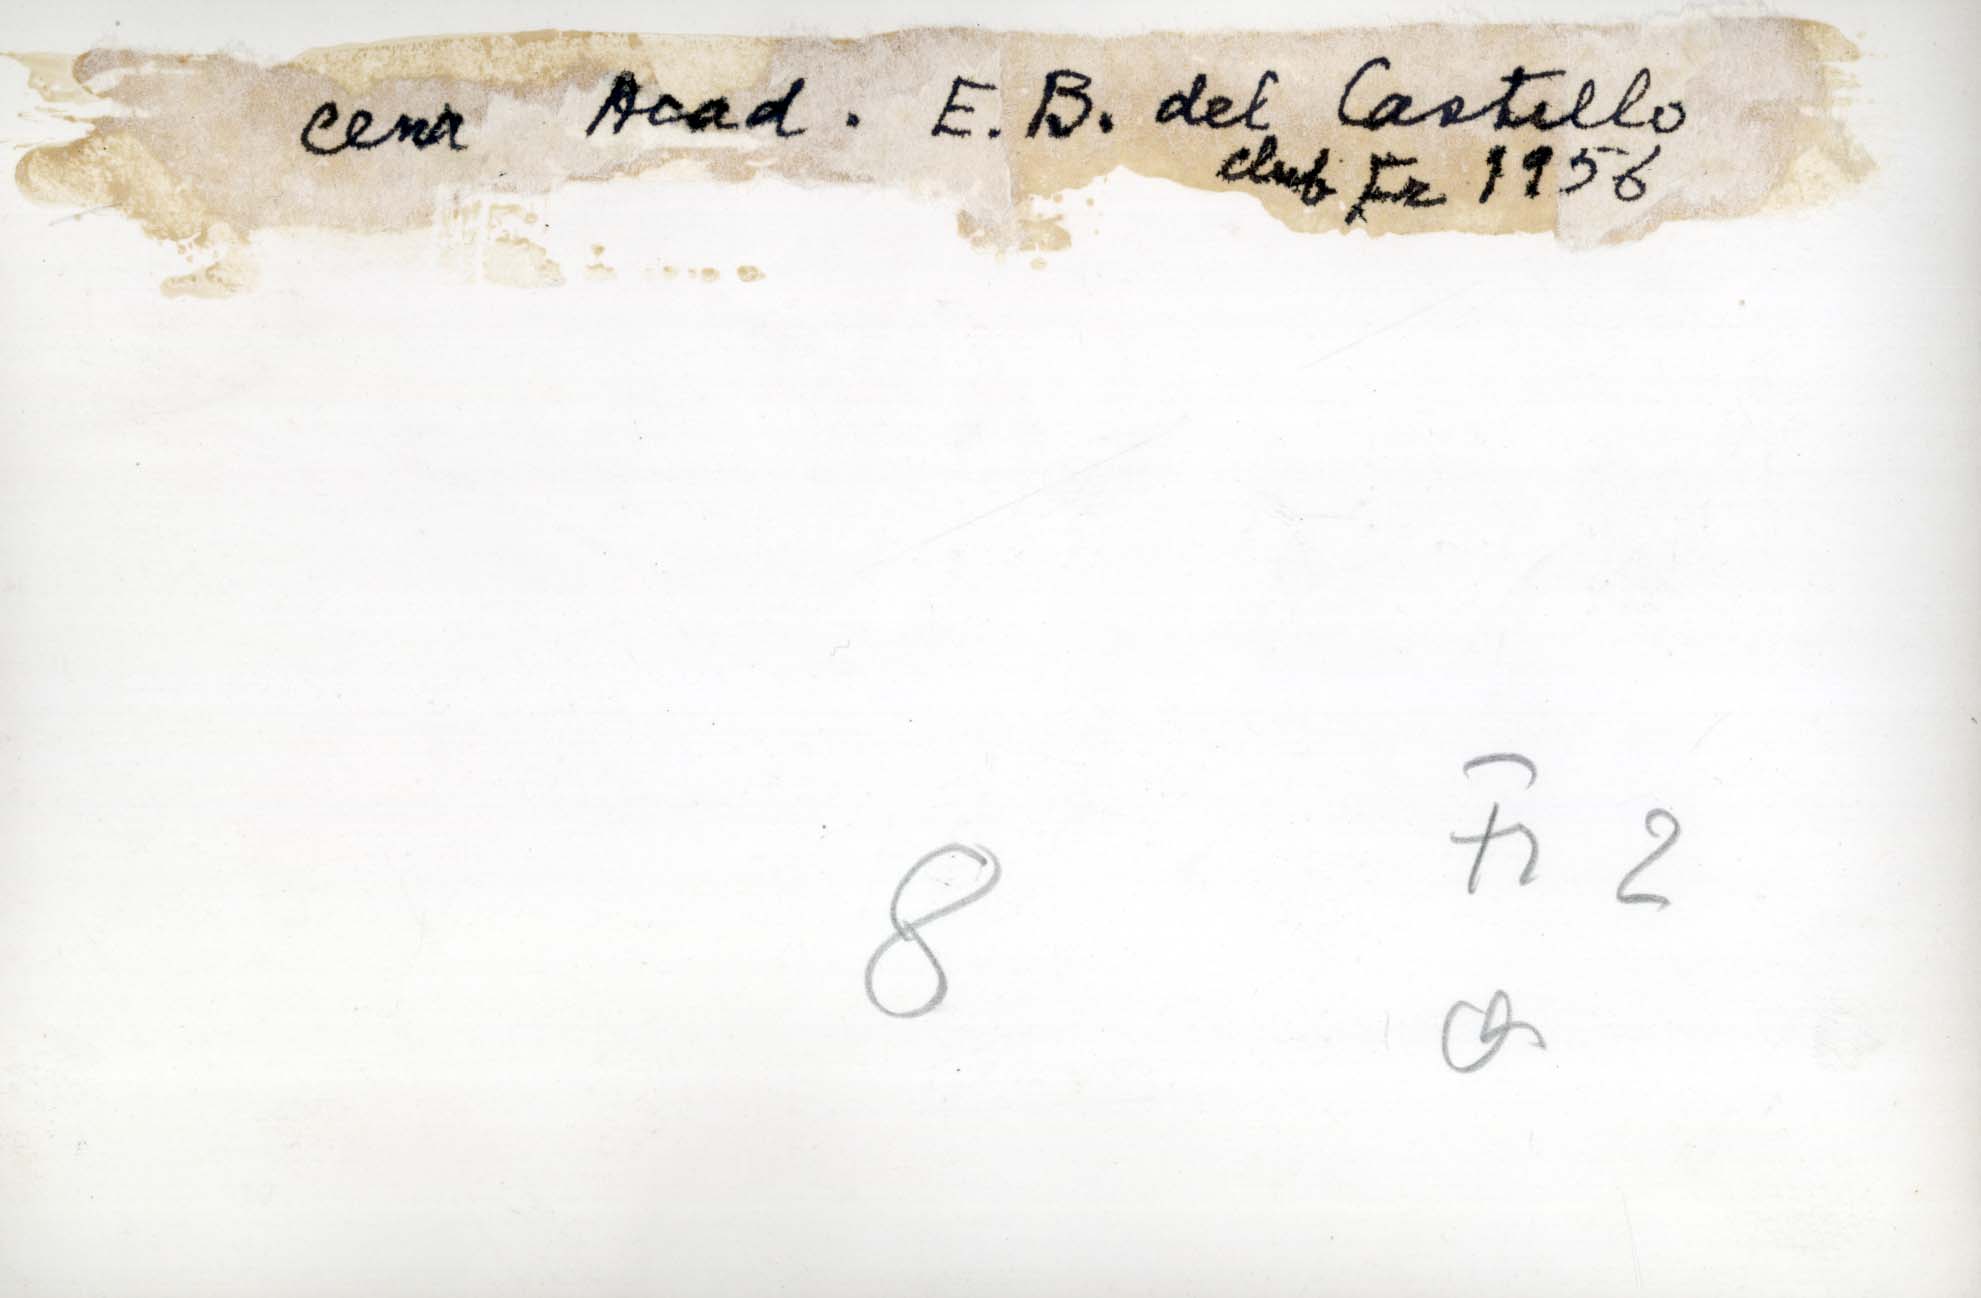 cena Acad. E. B. del Castillo
club Fr 1956
Fr 2
8